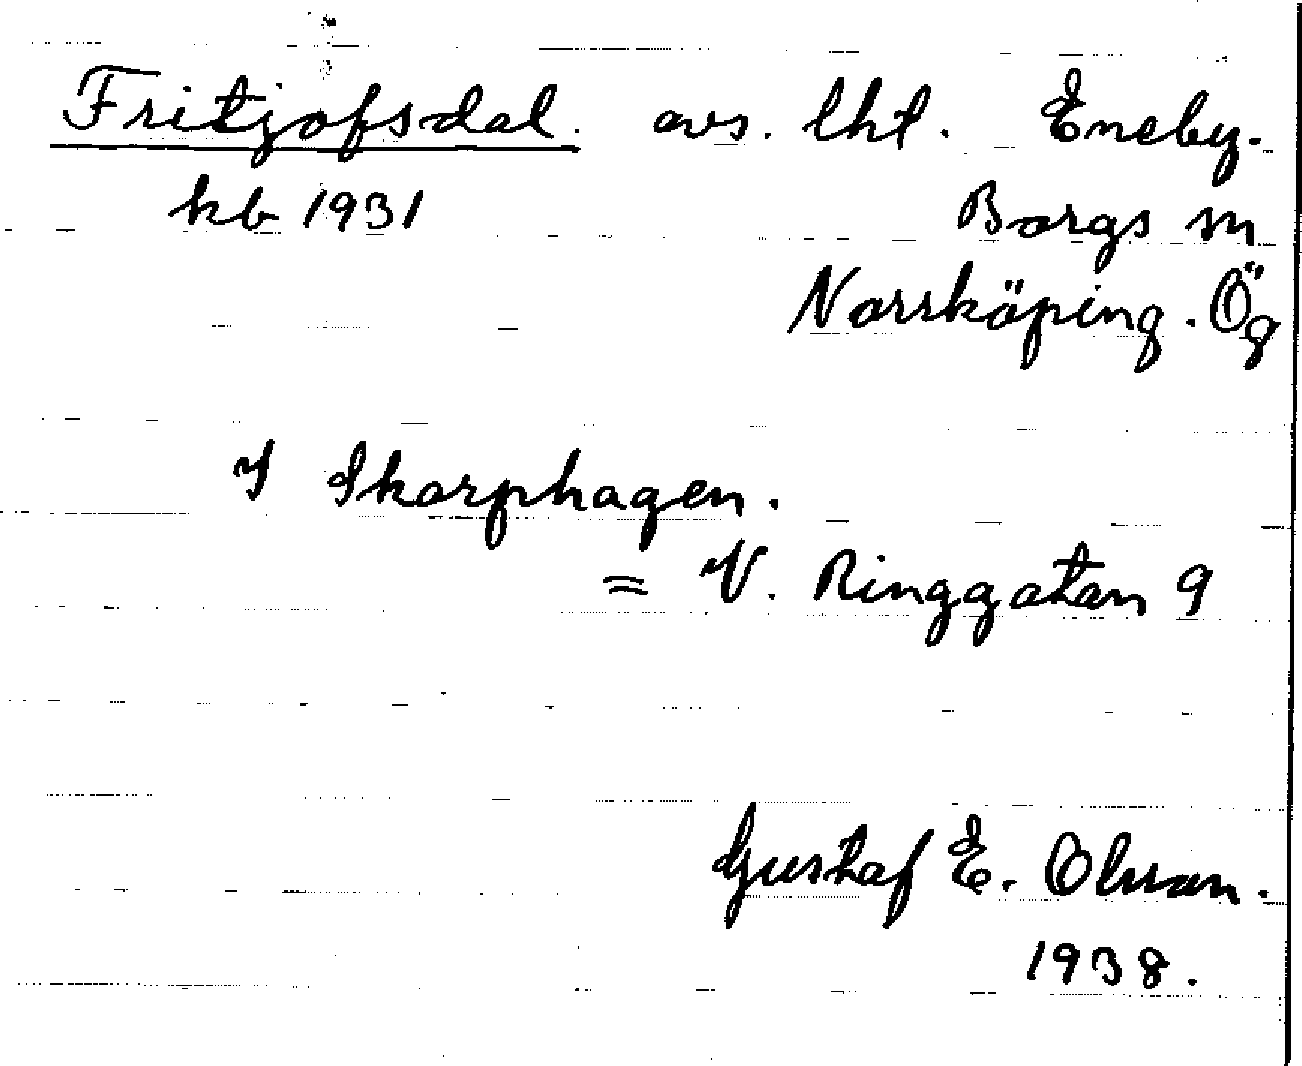 Fritjofsdal. avs. lht. Eneby-
kb 1931 Borgs sn
Norrköping. Ög
I Skarphagen.
= V. Ringgatan 9
Gustaf E. Olsson.
1938.